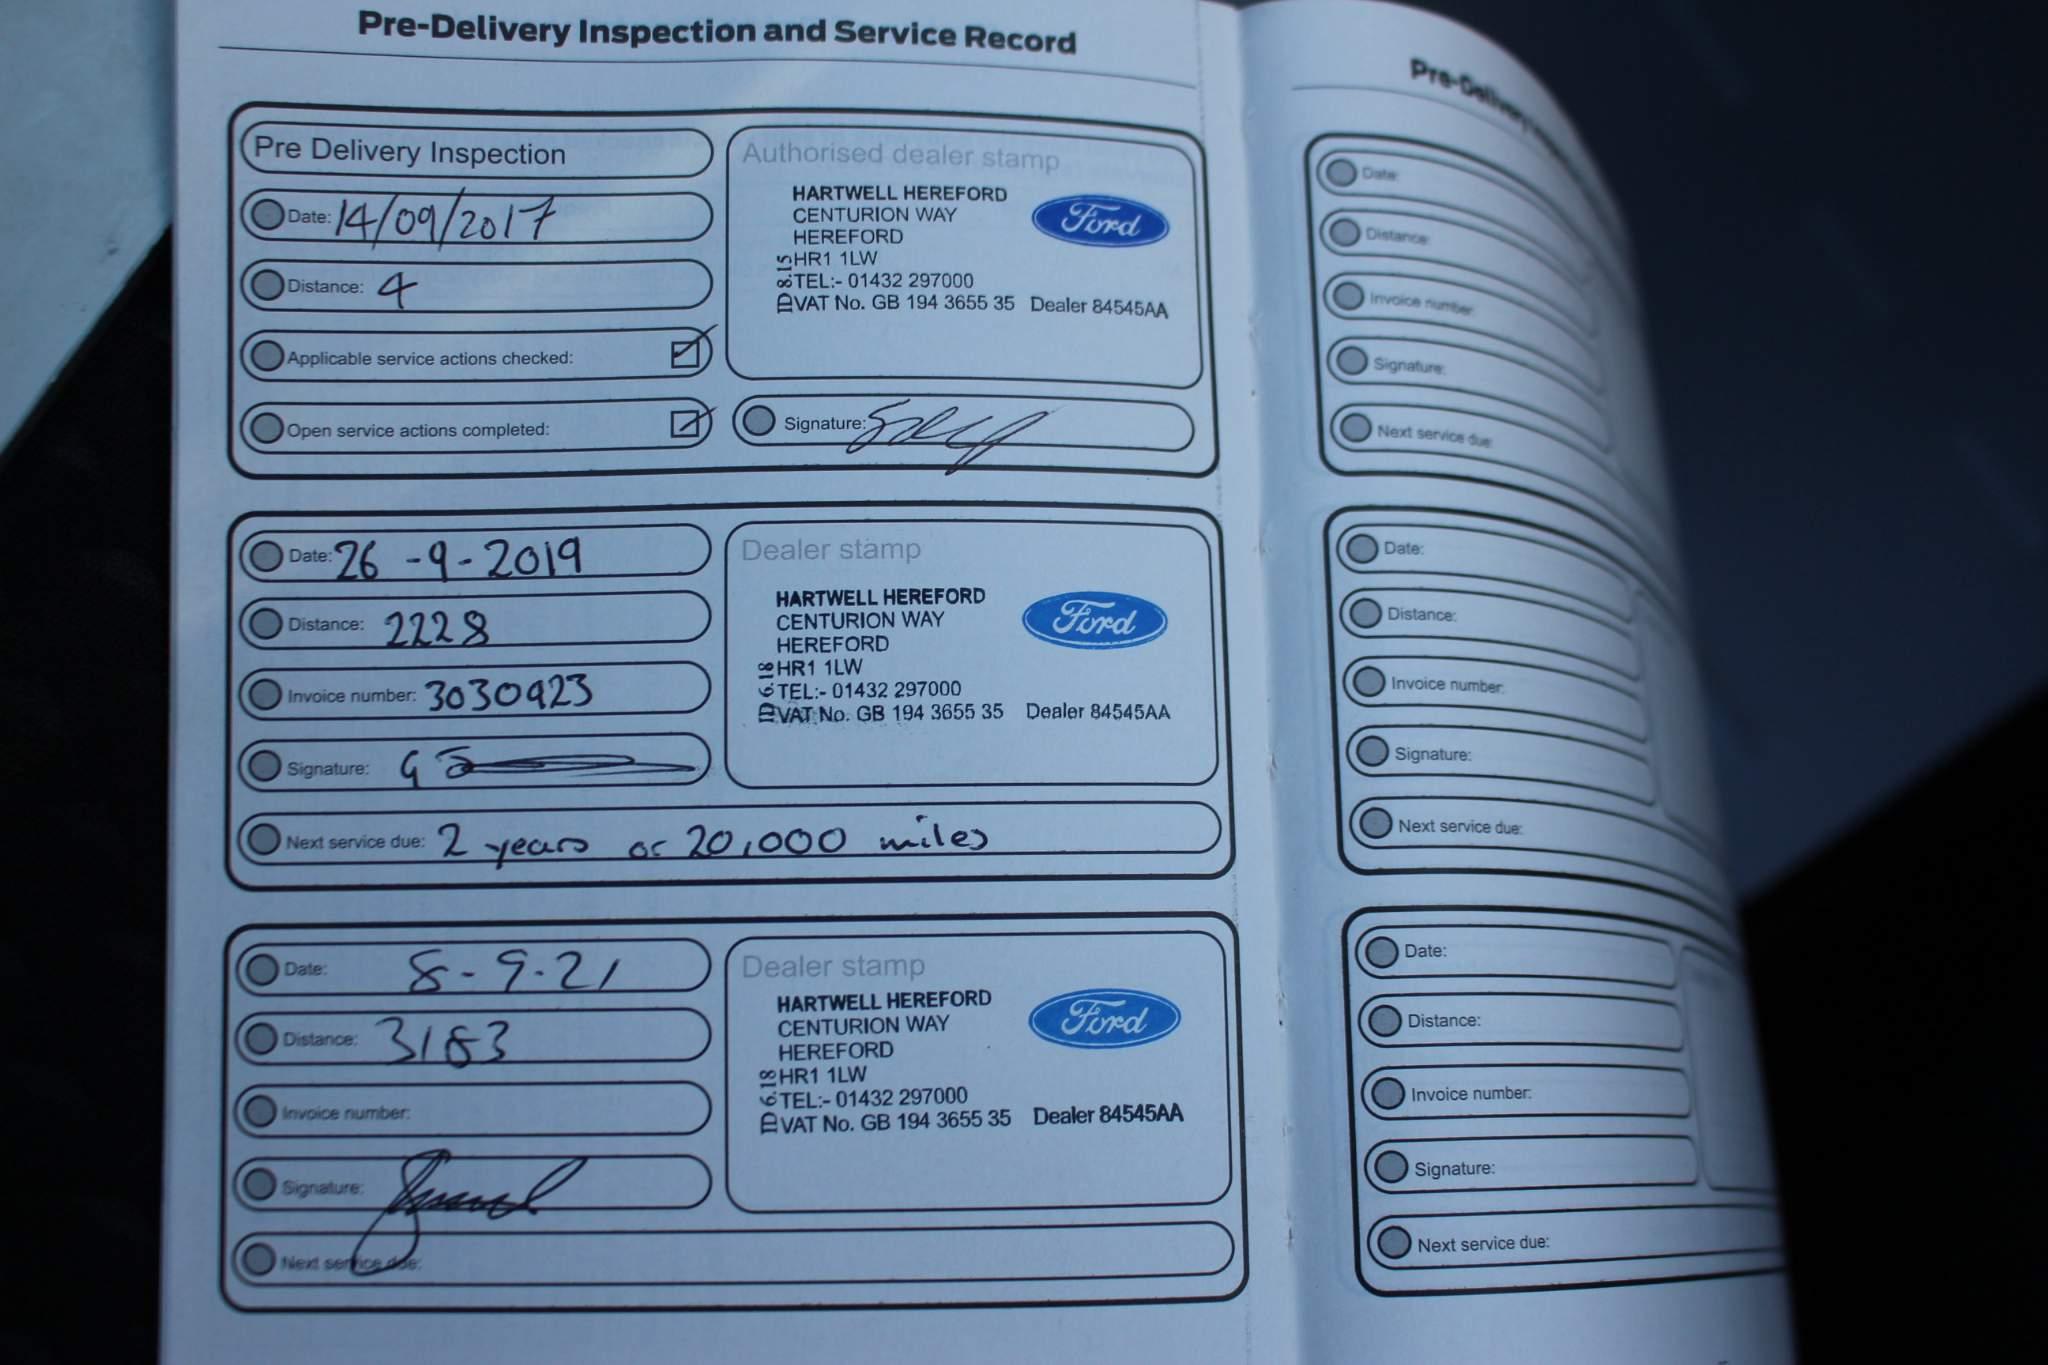 Pre-Delivery Inspection and Service Record
Pre Delivery Inspection
Date: 14/09/2017
Distance: 4
Applicable service actions checked:
Open service actions completed:
Authorised dealer stamp
HARTWELL HEREFORD
CENTURION WAY
HEREFORD
HR1 1LW
TEL:- 01432 297000
VAT No. GB 194 3655 35 Dealer 84545AA
ID 8.15
Ford
Signature:
Date: 26-9-2019
Distance: 2228
Invoice number: 3030923
Signature:
Next service due: 2 years or 20,000 miles
Dealer stamp
HARTWELL HEREFORD
CENTURION WAY
HEREFORD
HR1 1LW
TEL:- 01432 297000
VAT No. GB 194 3655 35 Dealer 84545AA
ID 6.18
Ford
Date: 8-9-21
Distance: 3183
Invoice number:
Signature:
Next service due:
Dealer stamp
HARTWELL HEREFORD
CENTURION WAY
HEREFORD
HR1 1LW
TEL:- 01432 297000
VAT No. GB 194 3655 35 Dealer 84545AA
ID 6.18
Ford
Pre-Delivery
Date:
Distance:
Invoice number:
Signature:
Next service due:
Date:
Distance:
Invoice number:
Signature:
Next service due:
Date:
Distance:
Invoice number:
Signature:
Next service due: